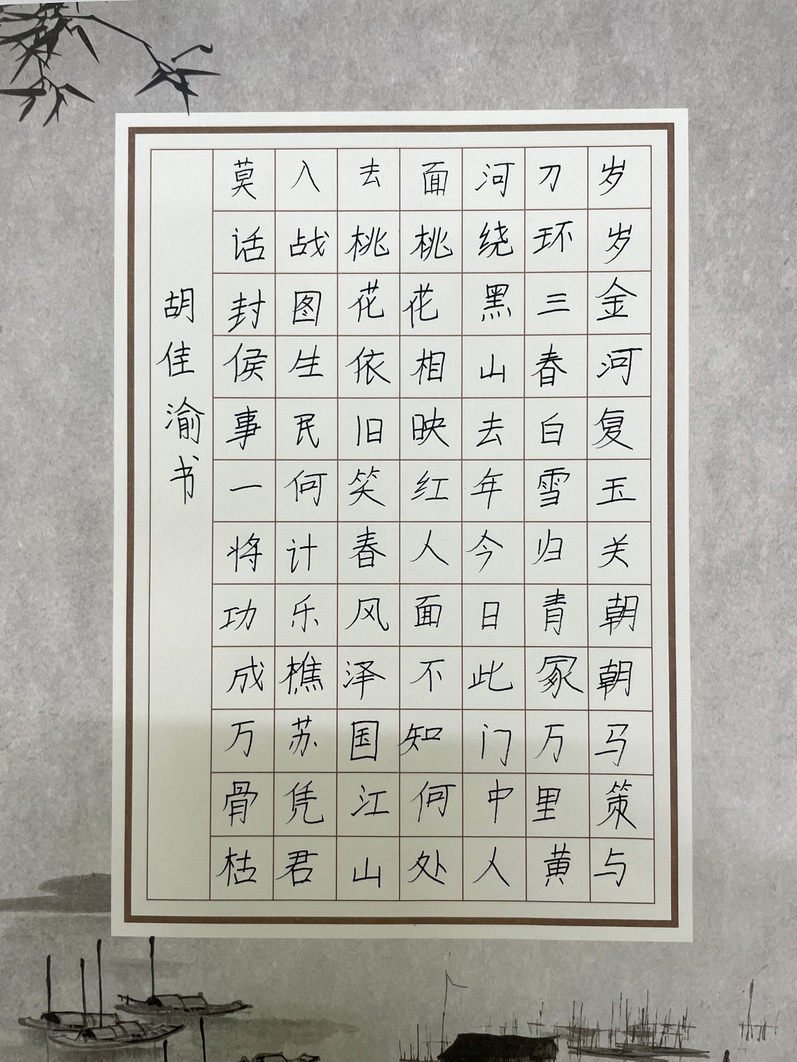 岁岁金河复玉关朝朝马策与
刀环三春白雪归青冢万里黄
河绕黑山去年今日此门中人
面桃花相映红人面不知何处
去桃花依旧笑春风泽国江山
入战图生民何计乐樵苏凭君
莫话封侯事一将功成万骨枯
胡佳渝书